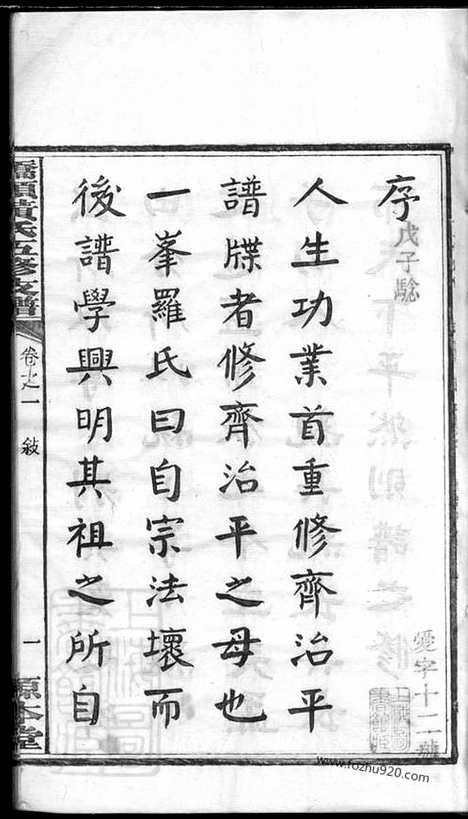 序
戊子騐
人生功業首重修齊治平
譜牒者修齊治平之母也
一峯羅氏曰自宗法壞而
後譜學興明其祖之所自
黃氏五修支譜
卷之一
敍
一
源本堂
愛字十二號
www.fozhu920.com